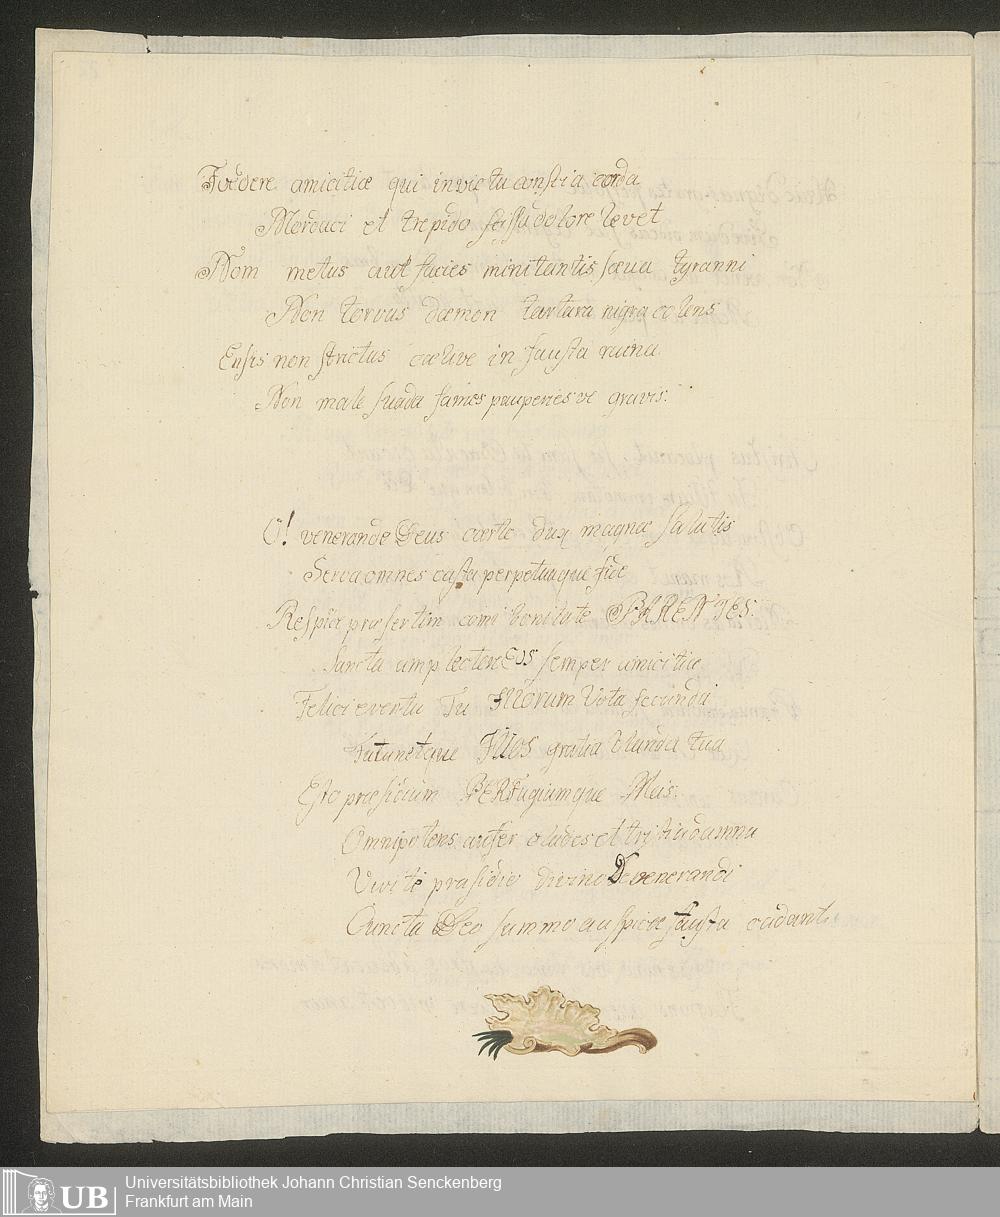 Foedere amicitiæ qui invictu constria corda
Mordaci et trepido scissu dolore levet
Nom metus aut facies minitantis sæua tyranni
Non torvus dæmon tartara nigra colens
Ensis non strictus cælive in fausta ruina
Non male suada fames pauperies ve gravis.
O! venerande Deus cœrte dux magnæ salutis
Serva omnes casta perpetuaque fide
Respice præsertim comi bonitate PARENTES.
Sancta amplectere Eos semper amicitia
Felici eventu Tu Filiorum Vota secunda
Filios gratia blanda tua
Esto præsidium PERFugiumque Meis.
Omnipotens aufer clades et tristia damna
Vivite præsidio divino venerandi
Cuncta Deo summo auspice fausta cadant.
UB
Universitätsbibliothek Johann Christian Senckenberg
Frankfurt am Main